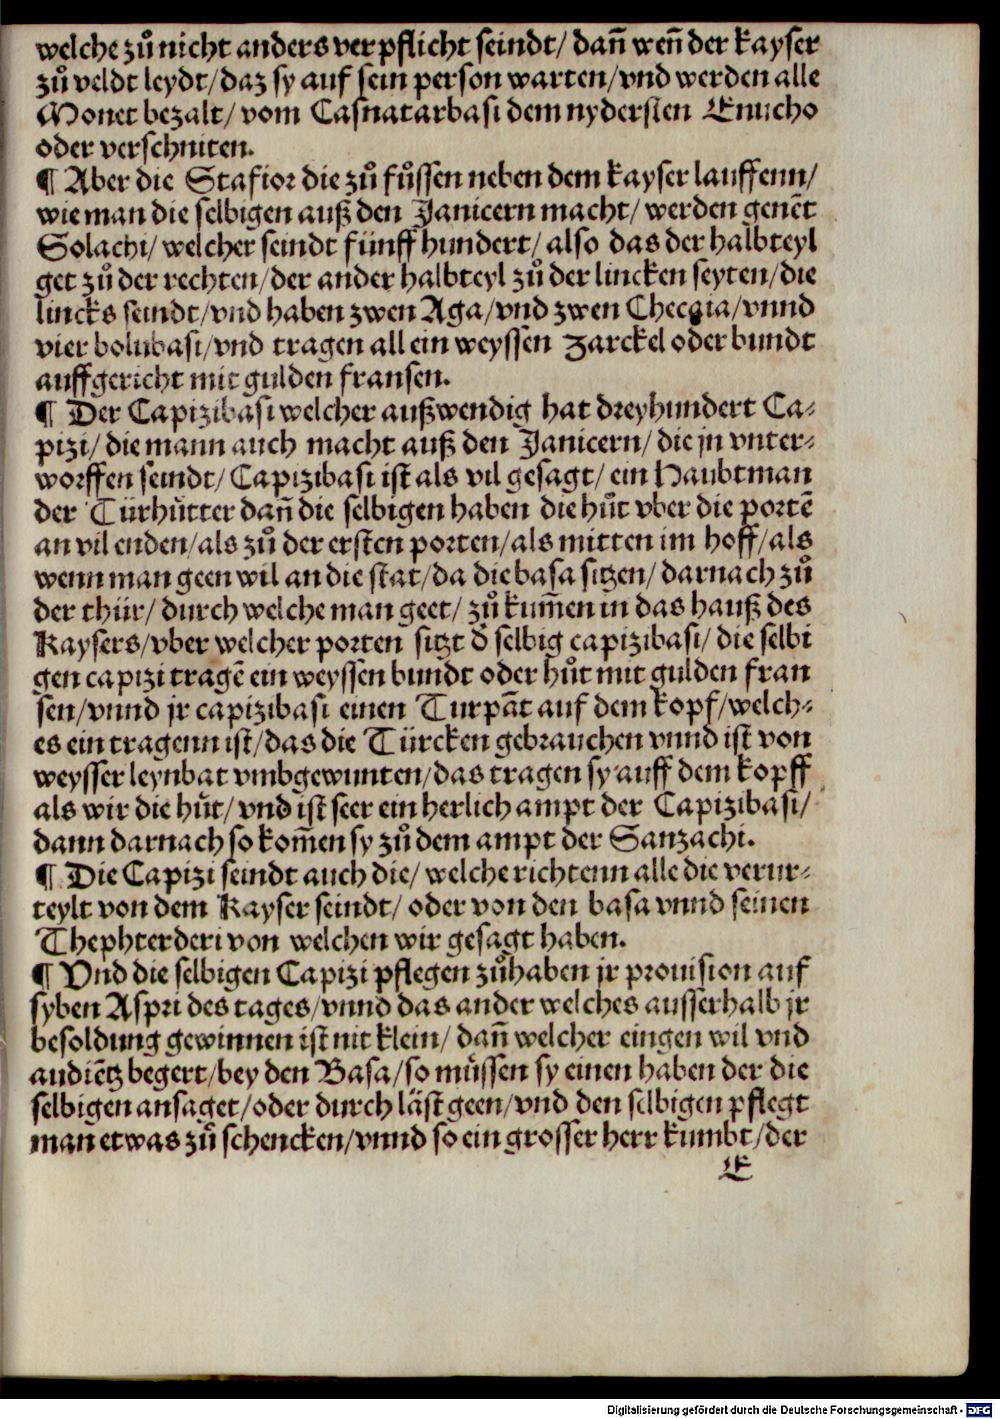 welche zů nicht anders verpflicht seindt/ dañ weñ der kayser
zů veldt leydt/ daz sy auf sein person warten/ vnd werden alle
Monet bezalt/ vom Casnatarbasi dem nydersten Enucho
oder verschniten.
¶ Aber die Stafior die zů fůssen neben dem kayser lauffenn/
wie man die selbigen auß den Janicern macht/ werden genẽt
Solachi/ welcher seindt fünff hundert/ also das der halbteyl
get zů der rechten/ der ander halbteyl zů der lincken seyten/ die
lincks seindt/ vnd haben zwen Aga/ vnd zwen Checaia/ vnnd
vier bolubasi/ vnd tragen all ein weyssen Zarckel oder bundt
auffgericht mit gulden fransen.
¶ Der Capizibasi welcher außwendig hat dreyhundert Ca⸗
pizi/ die mann auch macht auß den Janicern/ die jn vnter⸗
worffen seindt/ Capizibasi ist als vil gesagt/ ein Haubtman
der Türhůtter dañ die selbigen haben die hůt vber die portẽ
an vil enden/ als zů der ersten porten/ als mitten im hoff/ als
wenn man geen wil an die stat/ da die basa sitzen/ darnach zů
der thür/ durch welche man geet/ zů kum̃en in das hauß des
Kaysers/ vber welcher porten sitzt d̃ selbig capizibasi/ die selbi
gen capizi tragẽ ein weyssen bundt oder hůt mit gulden fran
sen/ vnnd jr capizibasi einen Turpãt auf dem kopf/ welch⸗
es ein tragenn ist/ das die Türcken gebrauchen vnnd ist von
weysser leynbat vmbgewunten/ das tragen sy auff dem kopff
als wir die hůt/ vnd ist seer ein herlich ampt der Capizibasi/
dann darnach so kom̃en sy zů dem ampt der Sanzachi.
¶ Die Capizi seindt auch die/ welche richtenn alle die verur⸗
teylt von dem Kayser seindt/ oder von den basa vnnd seinen
Thephterderi von welchen wir gesagt haben.
¶ Vnd die selbigen Capizi pflegen zůhaben jr prouision auf
syben Aspri des tages/ vnnd das ander welches ausserhalb jr
besoldung gewinnen ist nit klein/ dañ welcher eingen wil vnd
audiẽtz begert/ bey den Basa/ so můssen sy einen haben der die
selbigen ansaget/ oder durch låst geen/ vnd den selbigen pflegt
man etwas zů schencken/ vnnd so ein grosser herr kumbt/ der
E
Digitalisierung gefördert durch die Deutsche Forschungsgemeinschaft - DFG